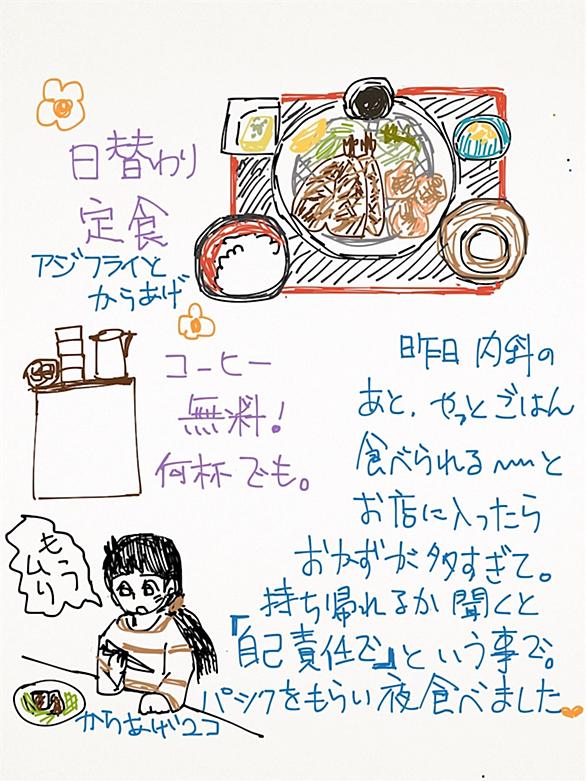 日替わり
定食
アジフライと
からあげ
コーヒー
無料！
何杯でも。
昨日 内科の
あと、やっとごはん
食べられる〜〜と
お店に入ったら
おかずが多すぎて。
持ち帰れるか聞くと
『自己責任で』という事で。
パックをもらい夜食べました
もう
ムリ
からあげ2コ